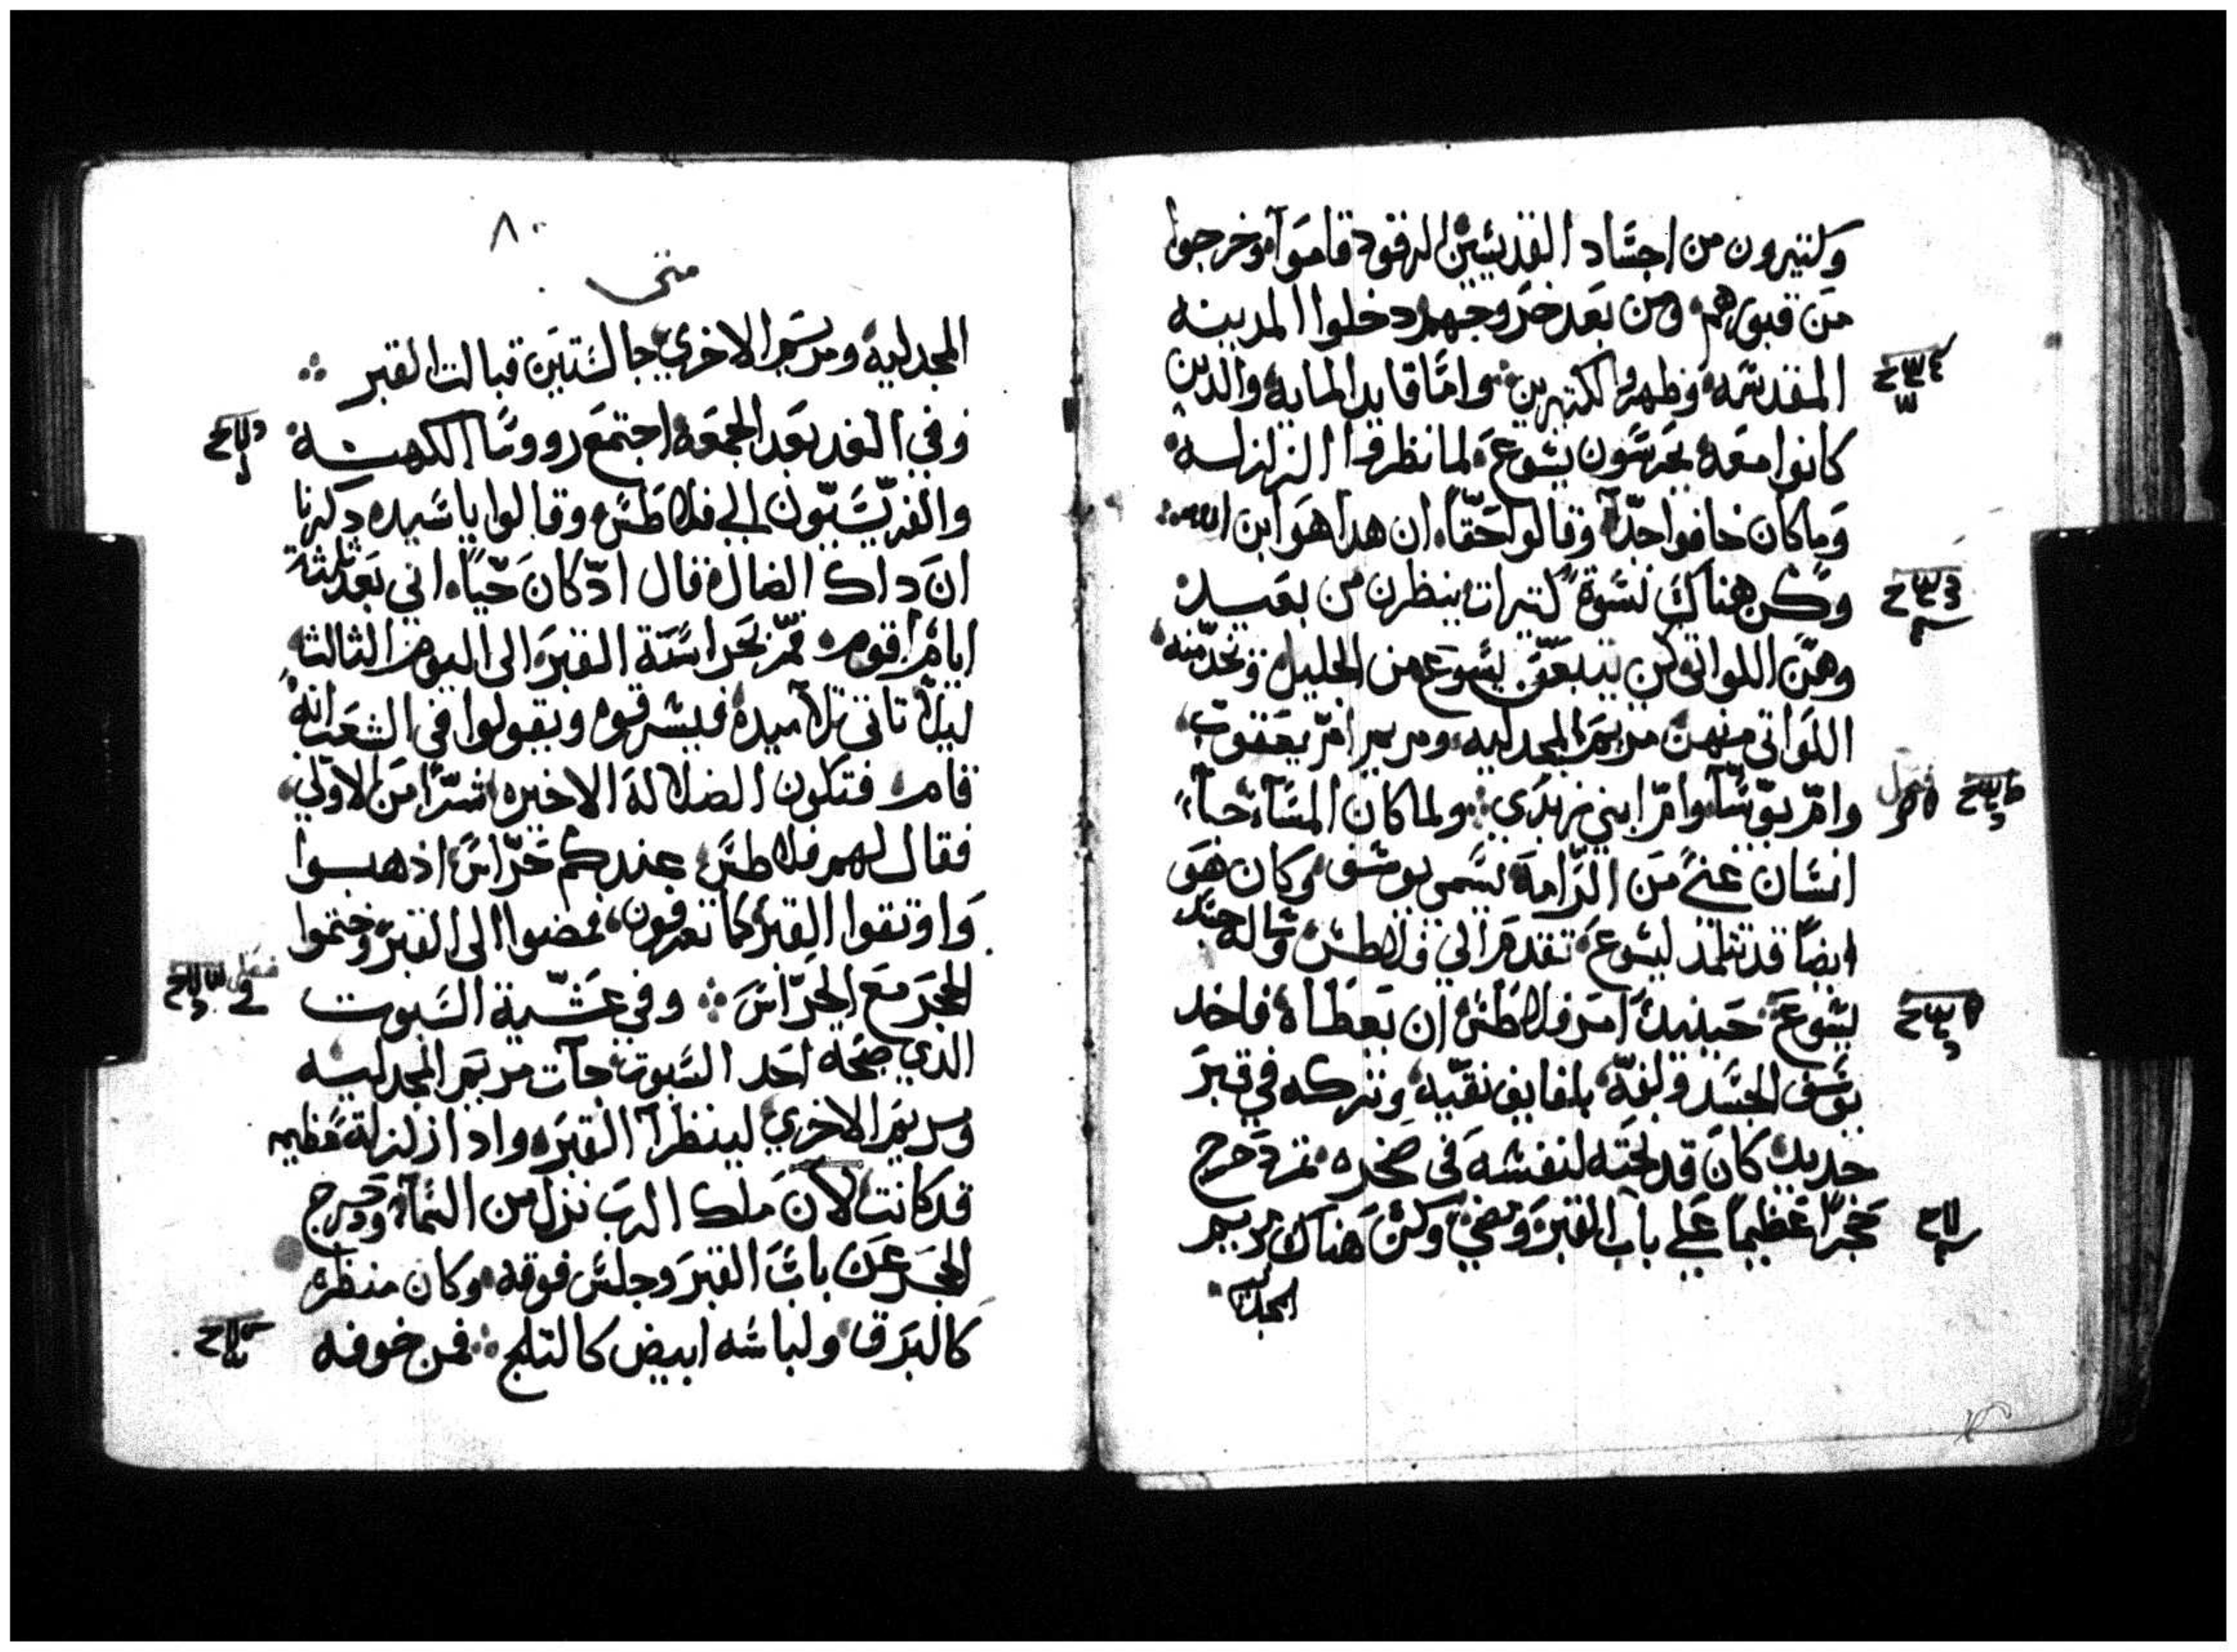 وكتيرون من اجساد القديسين الرقود قاموا وخرجوا
من قبورهم ومن بعد خروجهم دخلوا المدينه
المقدسه وظهروا لكتيرين واما قايد المايه والدين
كانوا معه يحرسون يسوع لما نظروا الزلزلة
وما كان خافوا جدًا وقالوا حقًا ان هدا هو ابن الله
وكن هناك نسوة كتيرات ينظرن من بعيد
وهن اللواتي كن تبعن يسوع من الجليل وتخدمنه
اللواتي منهن مريم المجدليه ومريم ام يعقوب
وام يوسا وام ابني زبدي ولما كان المساء جاء
فصل
انسان غني من الرامة يسمى يوسف وكان هو
ايضًا قد تتلمد ليسوع تقدم الى فلاطس وسأله جسد
يسوع حينيد امر فلاطس ان يعطاه فاخد
يوسف الجسد ولفه بلفايف نقيه وتركه في قبر
جديد كان قد نحته لنفسه في صخره تم دحرج
حجرًا عظيمًا على باب القبر ومضى وكن هناك مريم
المجدليه
٨٠
متى
المجدليه ومريم الاخري جالستين قبالت القبر
وفي الغد بعد الجمعه اجتمع رووسا الكهنة
والفريسيون الى فلاطس وقالوا يا سيد دكرنا
ان داك الضال قال اد كان حيًا اني بعد تلتة
ايام اقوم فمر بحراسة القبر الى اليوم الثالث
ليلا تاتي تلاميده فيسرقوه ويقولوا في الشعب انه
قام فتكون الضلالة الاخيره شرًا من الاولي
فقال لهم فلاطس عندكم حراس اذهبوا
واوتقوا القبر كما تعرفون فمضوا الى القبر وختموا
الحجر مع الحراس وفي عشية السبوت
فصل
الدي صبحه احد السبوت جآت مريم المجدليه
ومريم الاخري لينظرا القبر وادا زلزلة عظيمه
قد كانت لان ملك الرب نزل من السماء ودحرج
الحجر عن باب القبر وجلس فوقه وكان منظره
كالبرق ولباسه ابيض كالتلج فمن خوفه